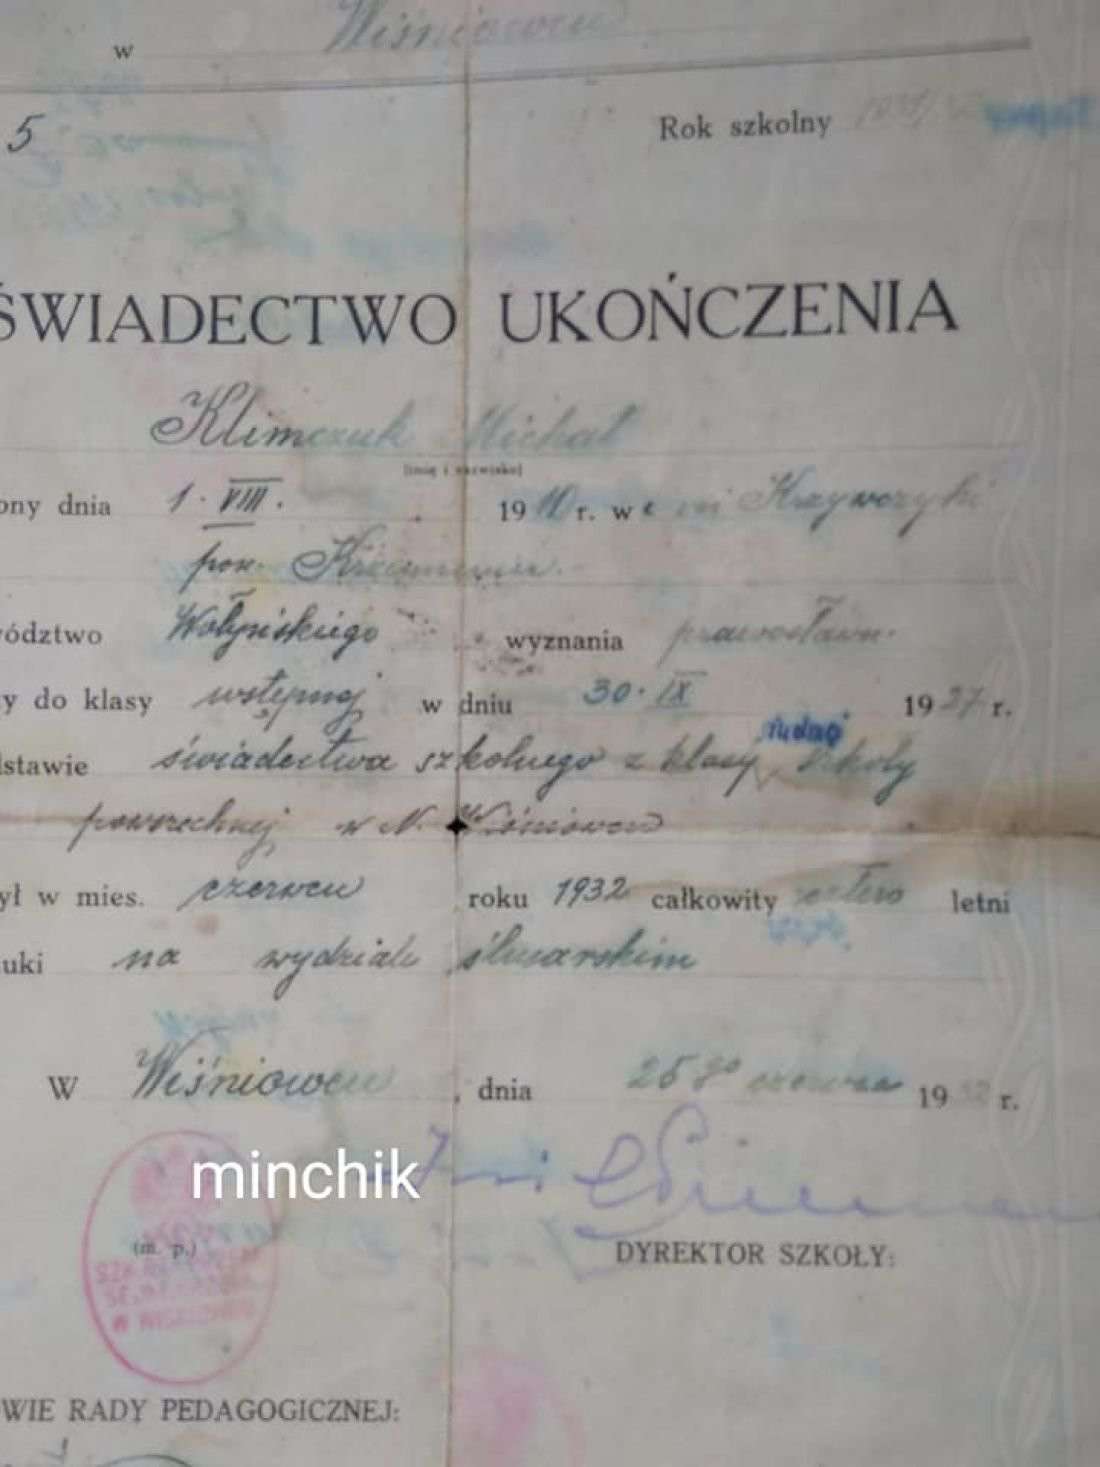 w Wiśniowcu
5
Rok szkolny 1931/32
ŚWIADECTWO UKOŃCZENIA
Klimczuk Michał
[imię i nazwisko]
ony dnia 1. VIII. 1910 r. we wsi Krzywczyki
pow. Krzemieniec.
ództwo Wołyńskiego wyznania prawosławn.
y do klasy wstępnej w dniu 30. IX 1927 r.
siódmej
dstawie świadectwa szkolnego z klasy szkoły
powszechnej w N. Wiśniowcu
ył w mies. czerwcu roku 1932 całkowity cztero letni
uki na wydziale ślusarskim
W Wiśniowcu, dnia 25 go czerwca 1932 r.
minchik
(m. p.)
W WIŚNIOWCU
DYREKTOR SZKOŁY:
WIE RADY PEDAGOGICZNEJ: